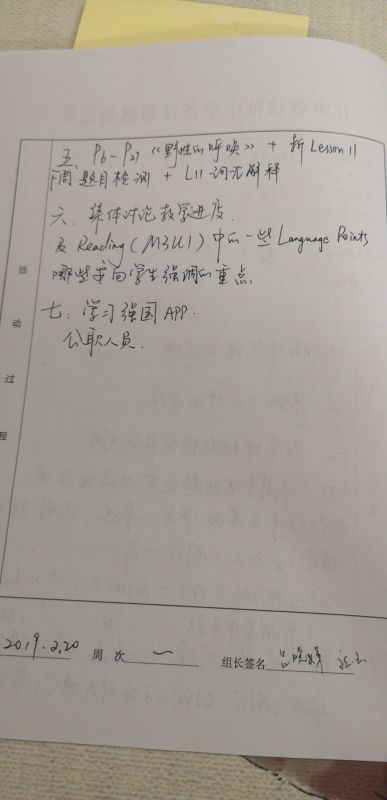 五. P6-P27《野性的呼唤》+ 新Lesson 11
下周题目检测 + L11词汇解释
六. 集体讨论教学进度.
及 Reading (M3U1) 中的一些 Language Points
哪些需向学生强调的重点
七. 学习强国APP.
公职人员.
活动过程
2019.2.20 周次 一 组长签名